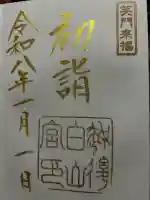 笑門来福
初詣
令和八年一月一日
白山宮印